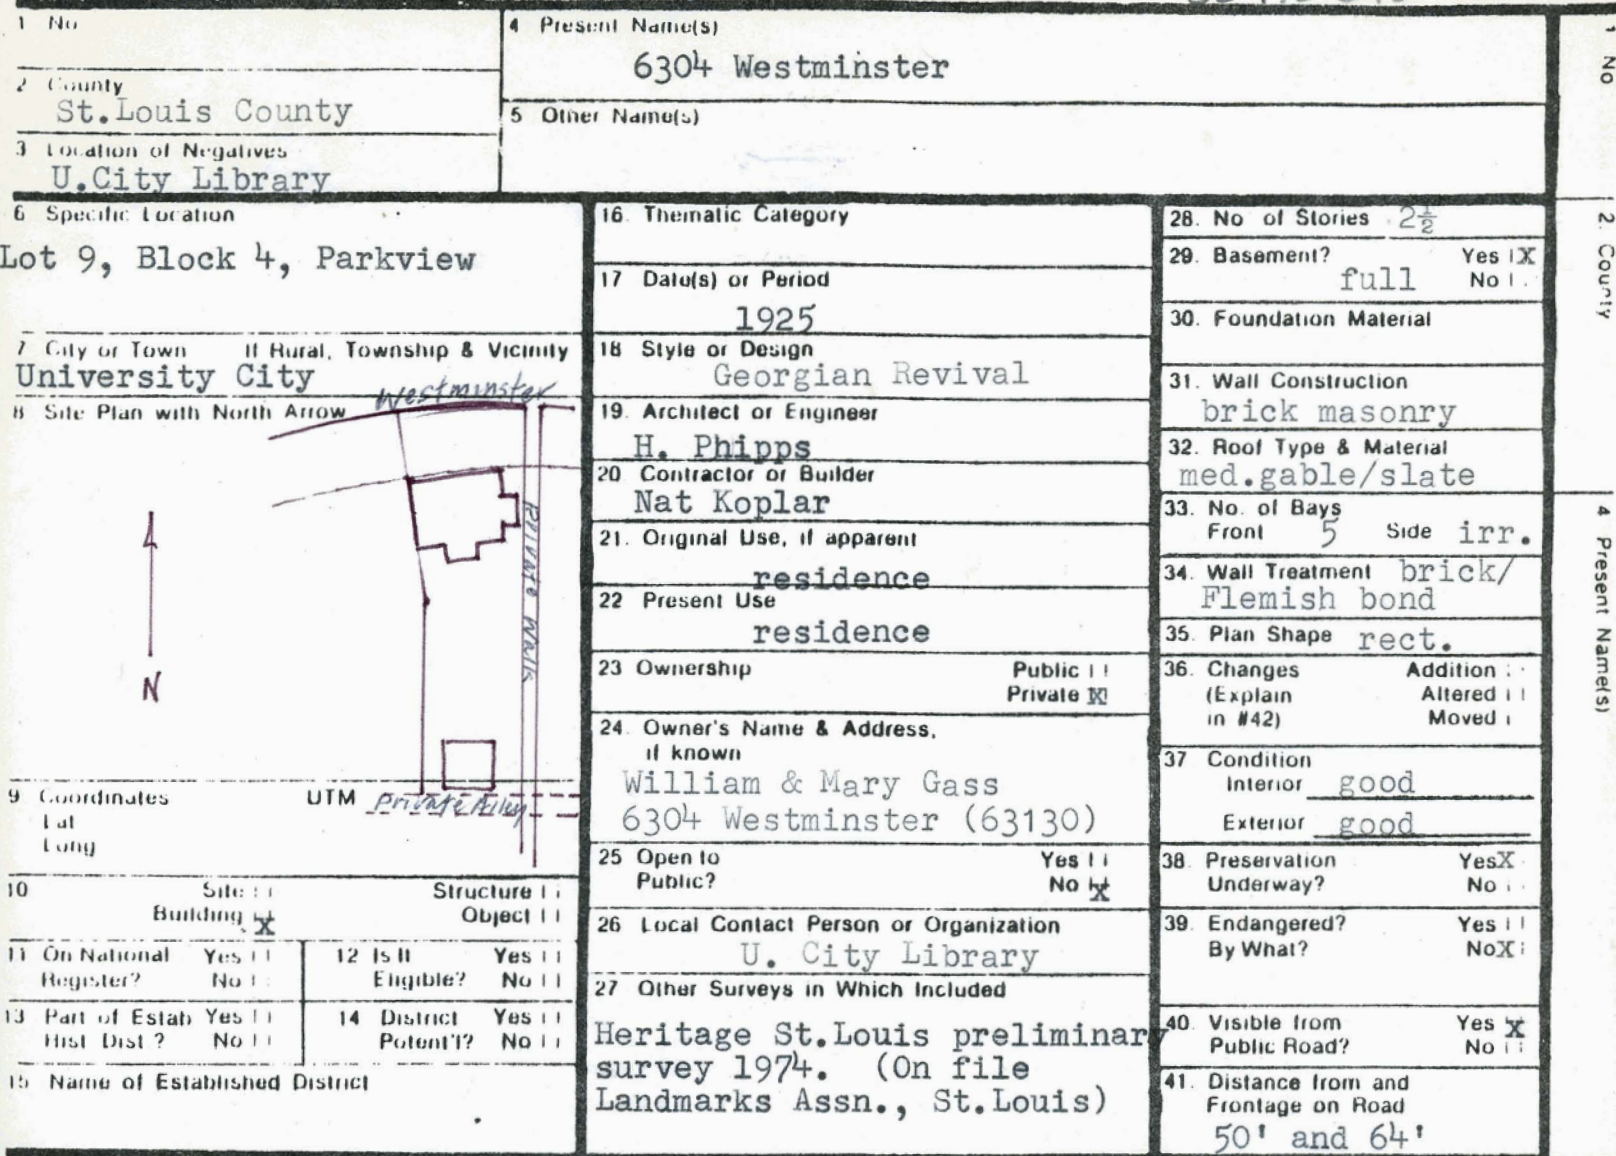 1 No
4 Present Name(s)
6304 Westminster
2 County
St.Louis County
5 Other Name(s)
3 Location of Negatives
U.City Library
6 Specific Location
Lot 9, Block 4, Parkview
7 City or Town If Rural, Township & Vicinity
University City
8 Site Plan with North Arrow
Westminster
Private Walk
N
9 Coordinates UTM
Lat
Long
Private Alley
10 Site
Structure
Building X
Object
11 On National Register? Yes No
12 Is It Eligible? Yes No
13 Part of Estab Hist Dist? Yes No
14 District Potent'l? Yes No
15 Name of Established District
16. Thematic Category
17 Date(s) or Period
1925
18 Style or Design
Georgian Revival
19. Architect or Engineer
H. Phipps
20 Contractor or Builder
Nat Koplar
21. Original Use, if apparent
residence
22 Present Use
residence
23 Ownership Public
Private X
24. Owner's Name & Address,
if known
William & Mary Gass
6304 Westminster (63130)
25 Open to Yes
Public? No X
26 Local Contact Person or Organization
U. City Library
27 Other Surveys in Which Included
Heritage St.Louis preliminary
survey 1974. (On file
Landmarks Assn., St.Louis)
28. No of Stories 2½
29. Basement? Yes X
full No
30. Foundation Material
31. Wall Construction
brick masonry
32. Roof Type & Material
med.gable/slate
33. No. of Bays
Front 5 Side irr.
34. Wall Treatment brick/
Flemish bond
35. Plan Shape rect.
36. Changes Addition
(Explain Altered
in #42) Moved
37 Condition
Interior good
Exterior good
38. Preservation Yes X
Underway? No
39. Endangered? Yes
By What? No X
40. Visible from Yes X
Public Road? No
41. Distance from and
Frontage on Road
50' and 64'
1 No
2. County
4 Present Name(s)